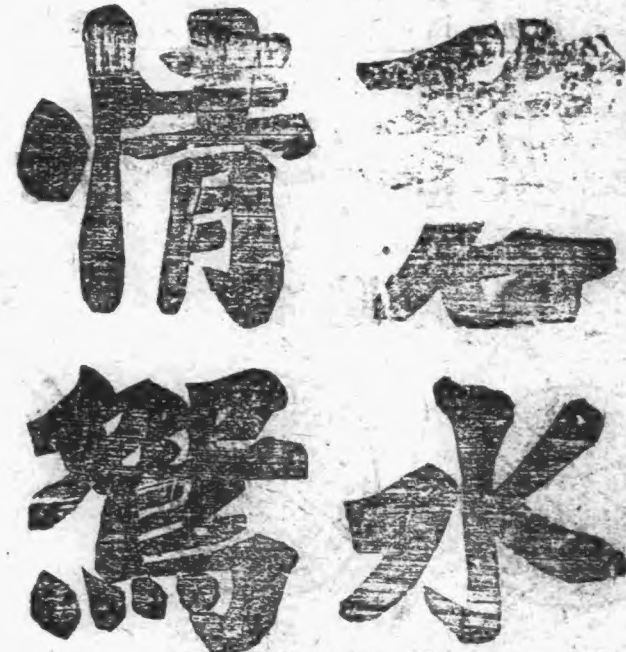 水
情鴛